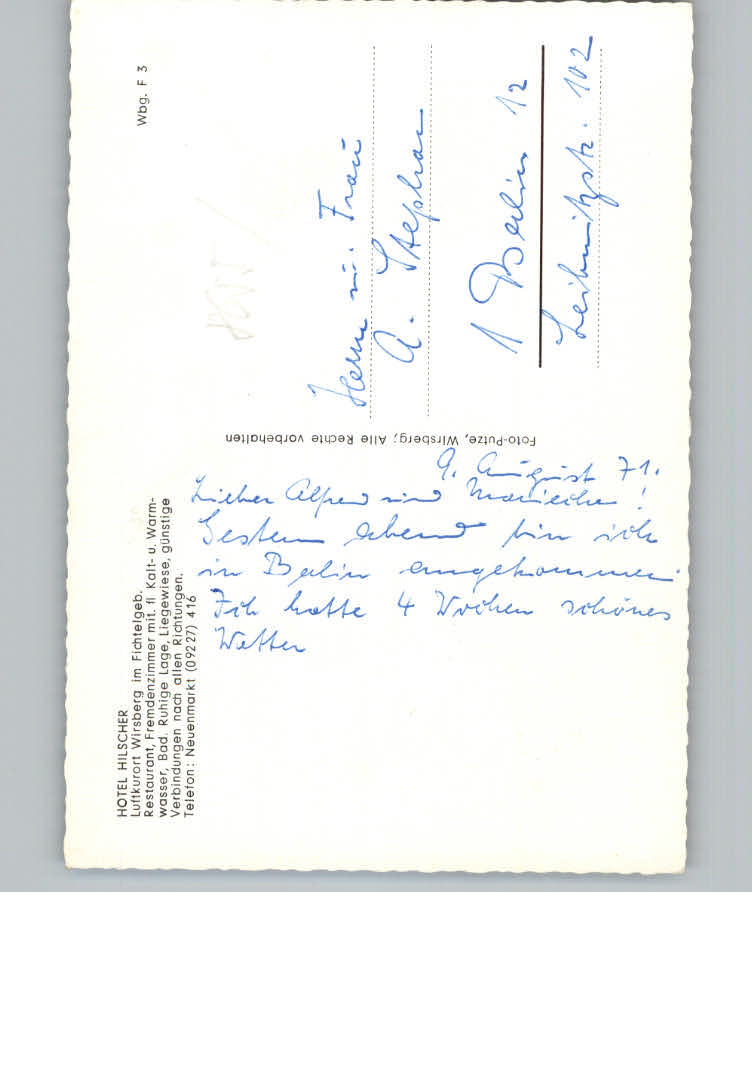 HOTEL HILSCHER
Luftkurort Wirsberg im Fichtelgeb.
Restaurant, Fremdenzimmer mit. fl. Kalt- u. Warm-
wasser, Bad. Ruhige Lage, Liegewiese, günstige
Verbindungen nach allen Richtungen.
Telefon: Neuenmarkt (09227) 416
Wbg. F 3
Foto-Putze, Wirsberg; Alle Rechte vorbehalten
9. August 71.
Lieber Alfred und Mariechen!
Gestern abend bin ich
in Berlin angekommen.
Ich hatte 4 Wochen schönes
Wetter
Herrn u. Frau
A. Stephan
1 Berlin 12
Leibnitzstr. 102